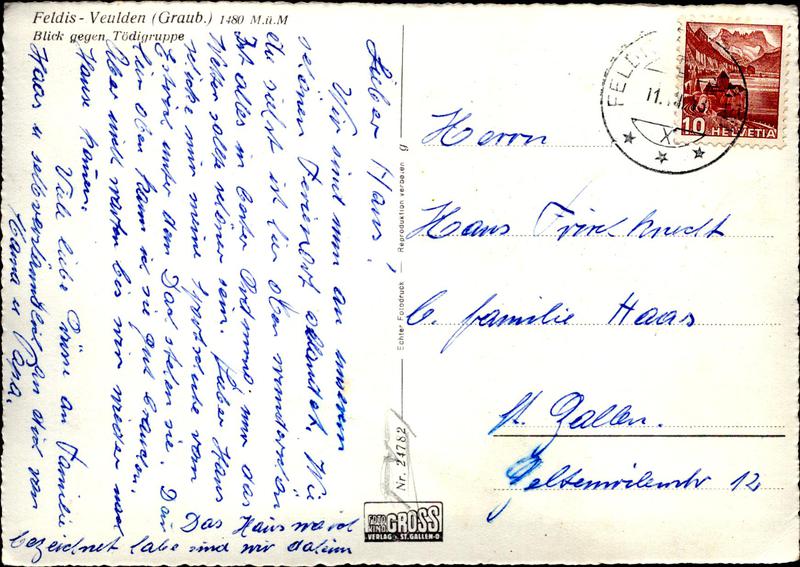 Feldis - Veulden (Graub.) 1480 M.ü.M
Blick gegen Tödigruppe
Lieber Hans,
Wir sind nun an unserem
schönen Ferienort gelandet. Wie
du siehst ist hier oben wunderschön
Ist alles in bester Ordnung nur das
Wetter sollte schöner sein. Lieber Hans
schicke mir meine Sportschuhe vom
Estrich unter dem Dach stehen sie. Da
hier oben kann ich sie gut brauchen.
Aber nicht warten bis wir wieder nach
Hause kommen.
Viele liebe Grüsse an Familie
Haas u selbverständlich an dich von
Mama u Papa.
Das Haus wo ich
bezeichnet habe sind wir daheim
Echter Fotodruck — Reproduktion verboten g
Nr. 24782
FOTO GROSS
VERLAG ST. GALLEN-O
FELDIS
10 HELVETIA
Herrn
Hans Frischknecht
b. Familie Haas
St. Gallen.
12